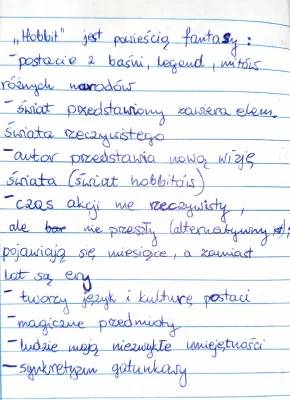 „Hobbit" jest powieścią fantasy :
- postacie z baśni, legend, mitów
różnych narodów
- świat przedstawiony zawiera elem.
świata rzeczywistego
- autor przedstawia nową wizję
świata (świat hobbitów)
- czas akcji nie rzeczywisty,
ale nie przeszły (alternatywny
pojawiają się miesiące, a zamiast
lat są ery
- tworzy język i kulturę postaci
- magiczne przedmioty
- ludzie mają niezwykłe umiejętności
- synkretyzm gatunkowy